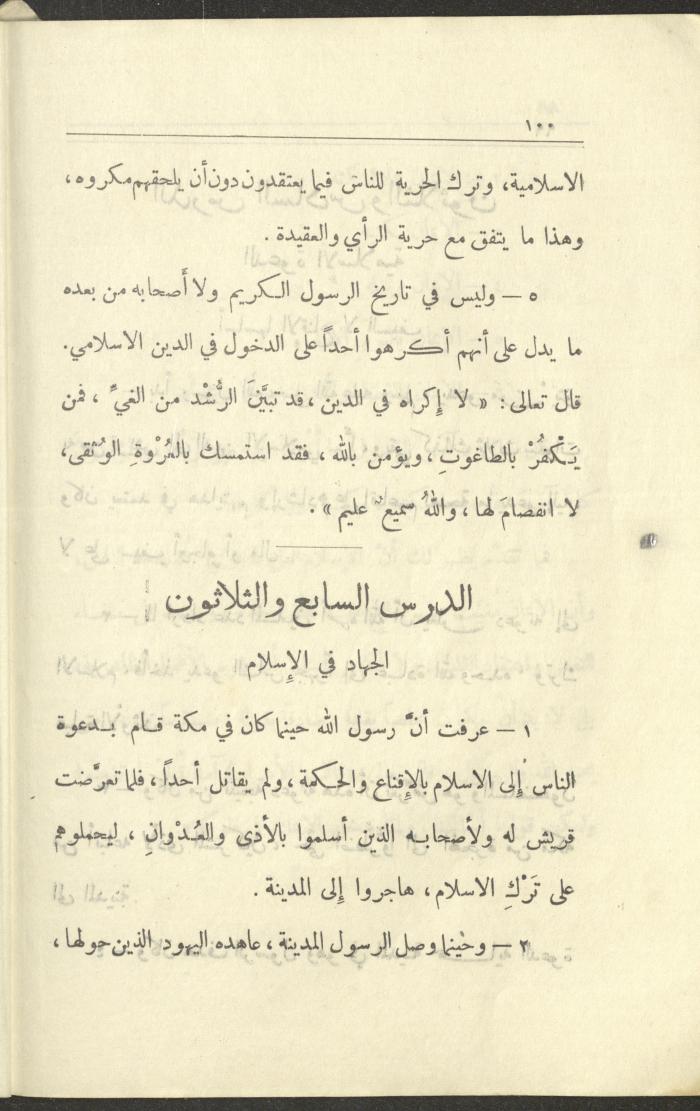 ١٠٠
الاسلامية، وترك الحرية للناس فيما يعتقدون دون أن يلحقهم مكروه،
وهذا ما يتفق مع حرية الرأي والعقيدة .
٥ – وليس في تاريخ الرسول الكريم ولا أصحابه من بعده
ما يدل على أنهم أكرهوا أحداً على الدخول في الدين الاسلامي.
قال تعالى: « لا إِكراه في الدين ، قد تبيَّنَ الرُّشْد من الغيِّ ، فمن
يَكْفُرْ بالطاغوتِ ، ويؤمن بالله ، فقد استمسك بالعُرْوةِ الوُثقى،
لا انفصامَ لها ، واللهُ سميعٌ عليم » .
الدرس السابع والثلاثون
الجهاد في الإِسلام
١ – عرفت أنَّ رسول الله حينما كان في مكة قام بدعوة
الناس إِلى الاسلام بالإِقناع والحكمة ، ولم يقاتل أحداً ، فلما تعرَّضت
قريش له ولأصحابه الذين أسلموا بالأذى والعُدْوانِ ، ليحملوهم
على تَرْكِ الاسلام ، هاجروا إِلى المدينة .
٢ – وحينما وصل الرسول المدينة ، عاهده اليهود الذين حولها ،